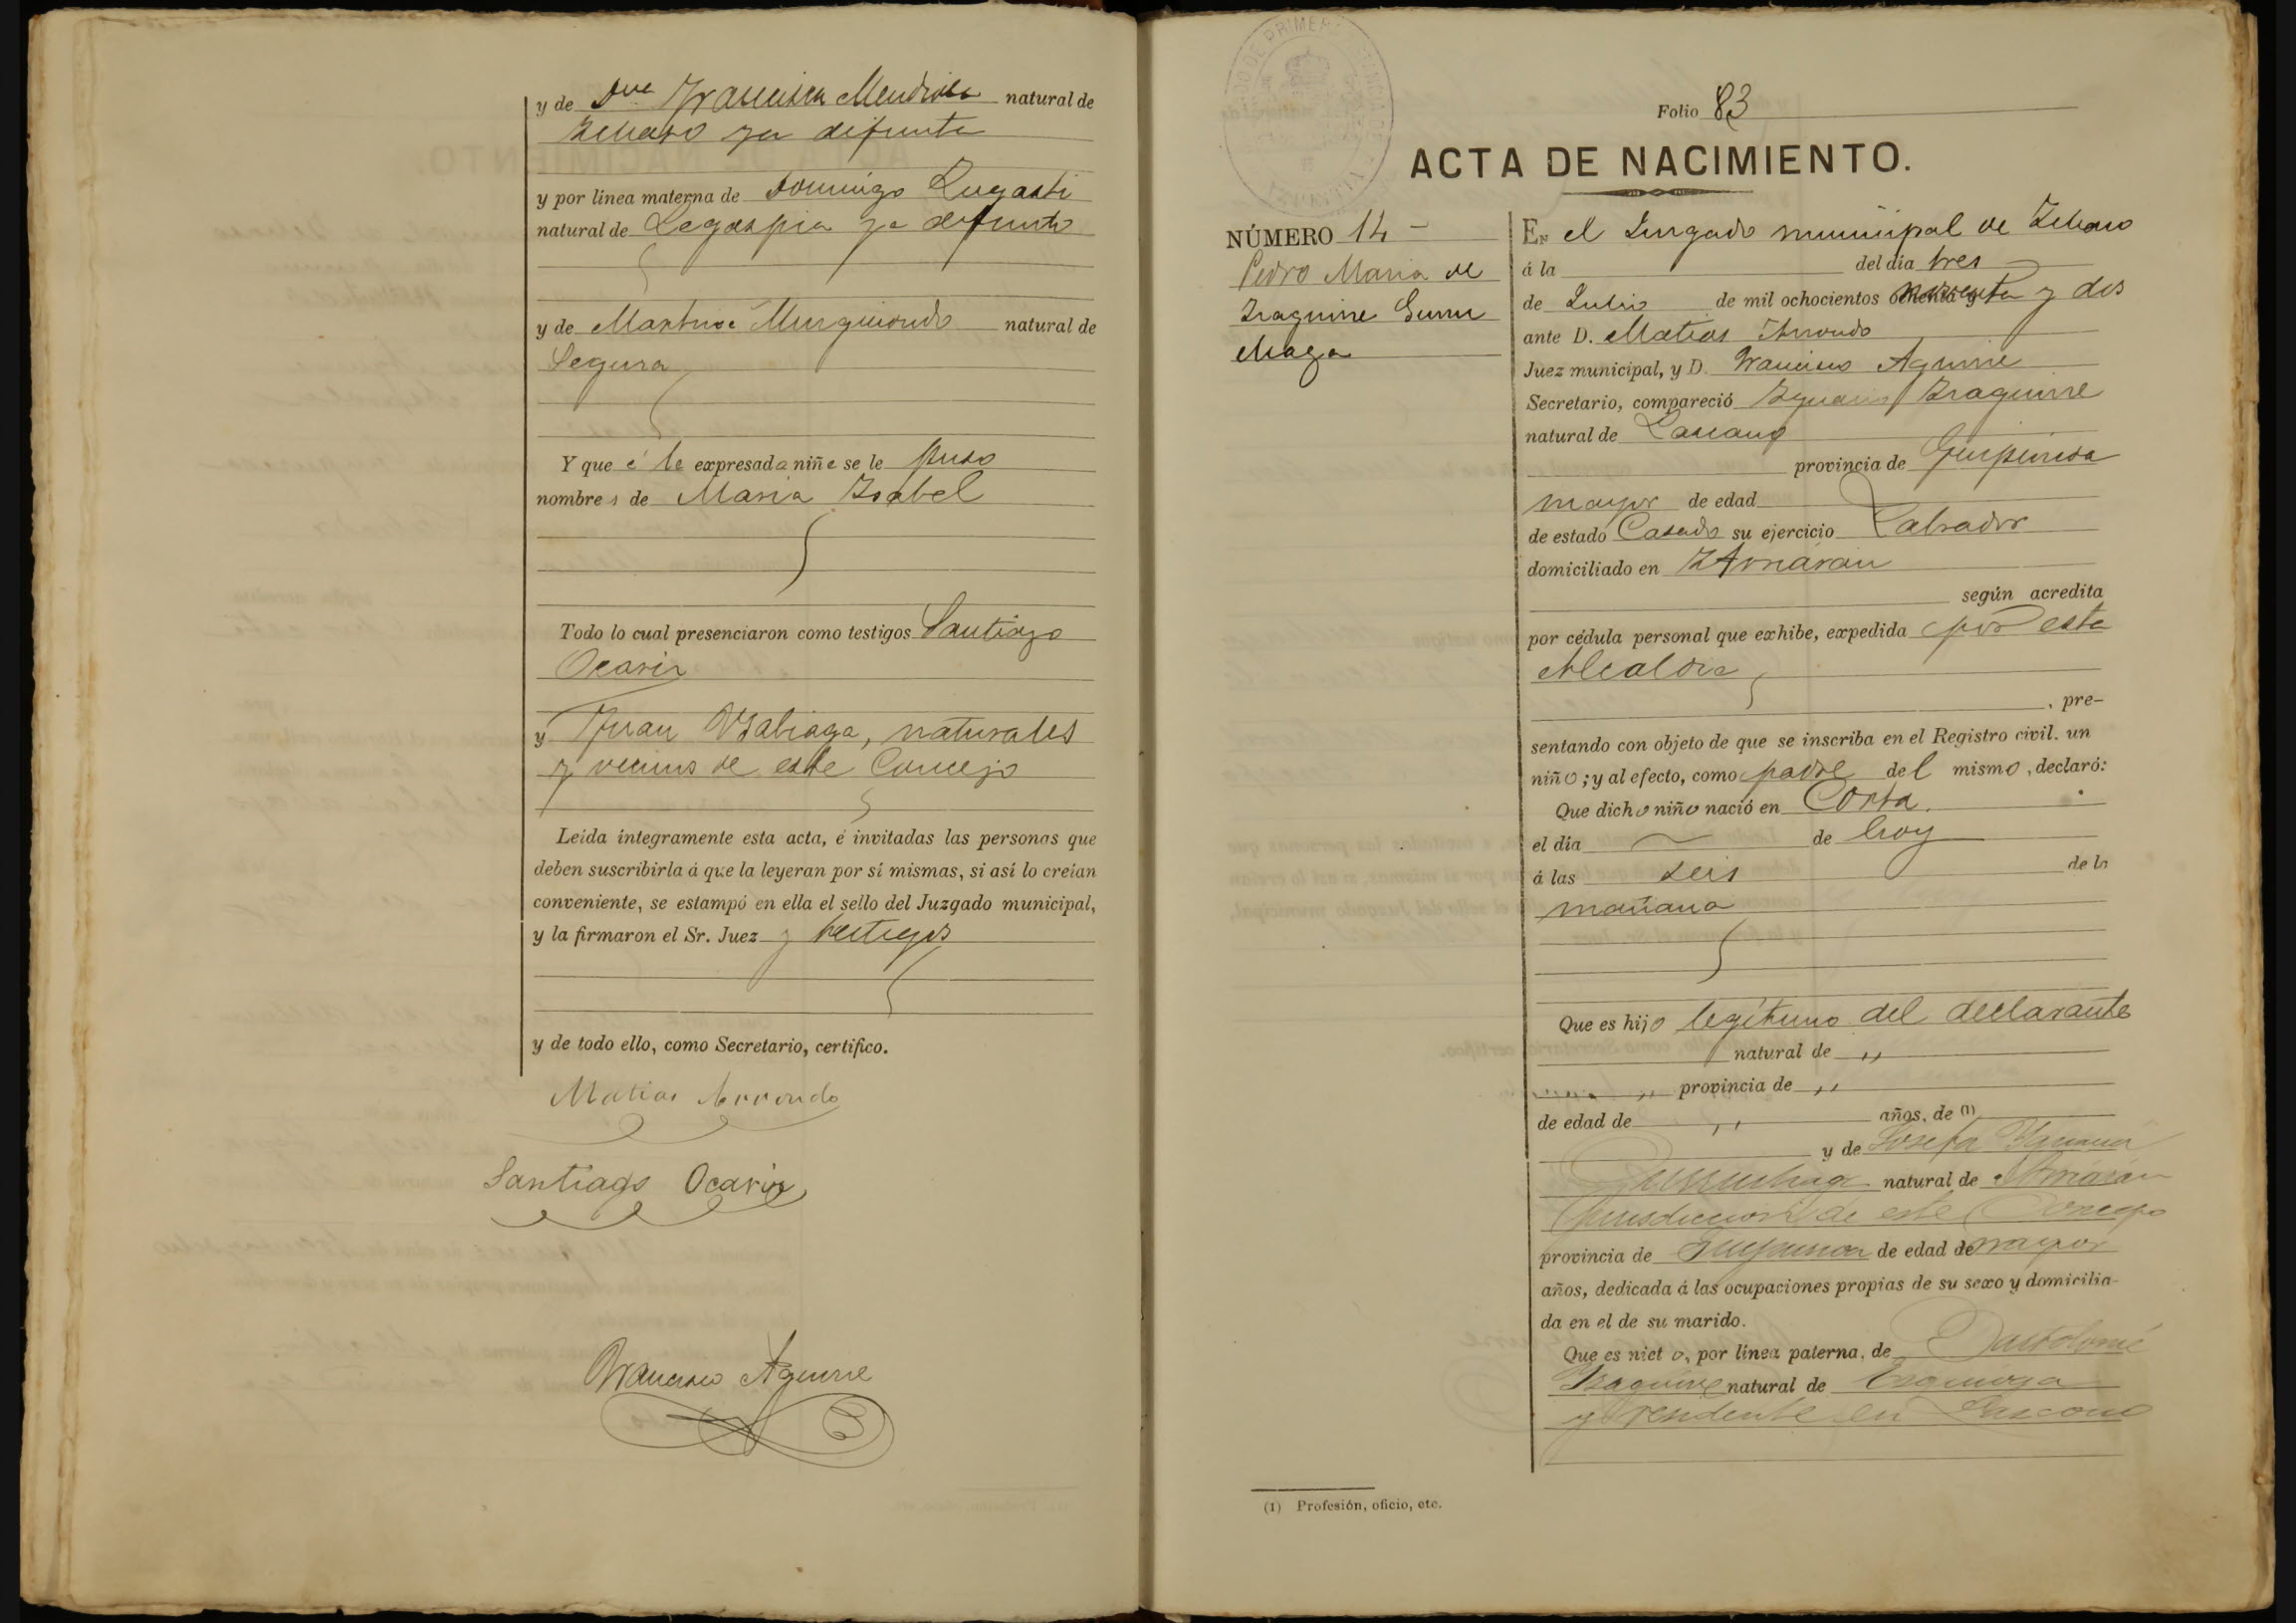 y de Dña Francisca Mendiola natural de
Ichaso ya difunta
y por línea materna de Domingo Lugasti
natural de Legazpia ya difunto
y de Martina Murguiondo natural de
Segura
Y que á la expresada niña se le puso
nombres de Maria Isabel
Todo lo cual presenciaron como testigos Santiago
Ocariz
y Juan Yzaliaga, naturales
y vecinos de este Concejo
Leída íntegramente esta acta, é invitadas las personas que
deben suscribirla á que la leyeran por sí mismas, si así lo creían
conveniente, se estampó en ella el sello del Juzgado municipal,
y la firmaron el Sr. Juez y testigos
y de todo ello, como Secretario, certifico.
Matias Arrondo
Santiago Ocariz
Francisco Aguirre
Folio 83
ACTA DE NACIMIENTO.
NÚMERO 14 -
Pedro Maria de
Izaguirre Gurru
chaga
En el Juzgado municipal de Ichaso
á la del día tres
de Julio de mil ochocientos noventa y dos
ante D. Matias Arrondo
Juez municipal, y D. Francisco Aguirre
Secretario, compareció Ignacio Izaguirre
natural de Lazcano
provincia de Guipúzcoa
mayor de edad
de estado Casado su ejercicio Labrador
domiciliado en Arriarán
según acredita
por cédula personal que exhibe, expedida por esta
Alcaldia
, pre-
sentando con objeto de que se inscriba en el Registro civil. un
niño; y al efecto, como padre del mismo, declaró:
Que dicho niño nació en Corta.
el día de hoy
á las seis de la
mañana
Que es hijo legítimo del declarante
natural de ,,
,, provincia de ,,
de edad de ,, años, de (1)
y de Josefa Ygnacia
Gurruchaga natural de Arriarán
jurisdiccion de este Concejo
provincia de Guipuzcoa de edad de mayor
años, dedicada á las ocupaciones propias de su sexo y domicilia-
da en el de su marido.
Que es nieto, por línea paterna, de Bartolomé
Izaguirre natural de Ezquioga
y residente en Lazcano
(1) Profesión, oficio, etc.